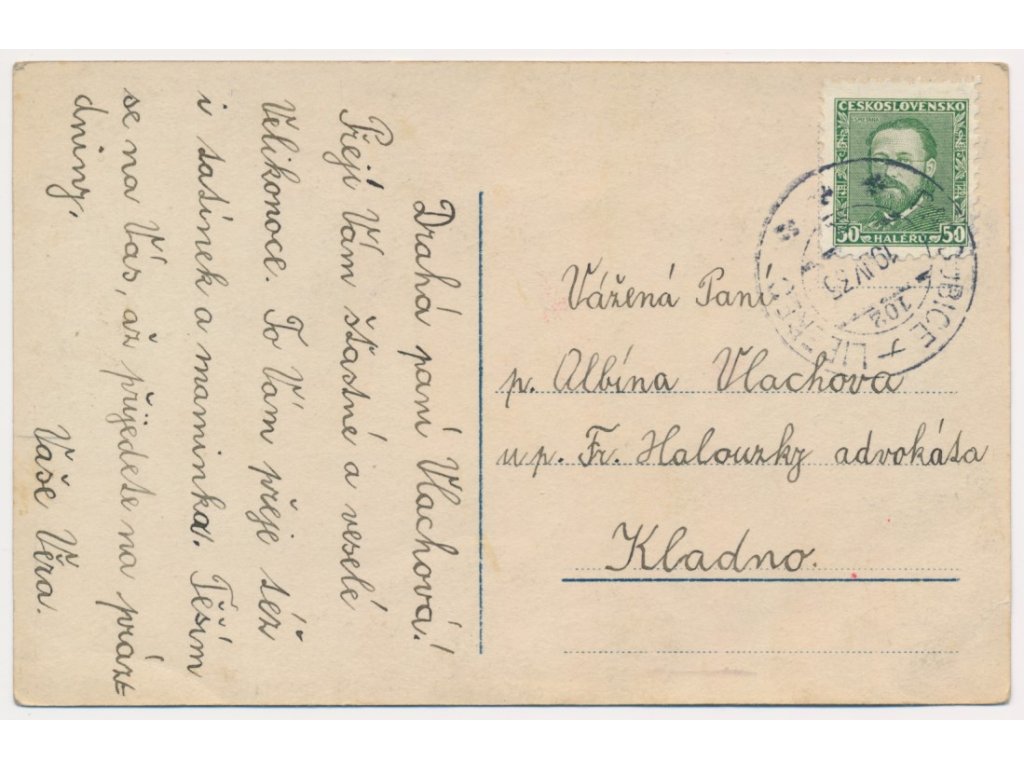 Drahá paní Vlachová!
Přejí Vám šťastné a veselé
Velikonoce. To Vám přeje též
i tatínek a maminka. Těším
se na Vás, až přijedete na prázd
dniny.
Vaše Věra.
ČESKOSLOVENSKO
SMETANA
50 HALÉŘŮ 50
19.IV.35
Vážená Paní
p. Albína Vlachova
u p. Fr. Halouzky advokáta
Kladno.